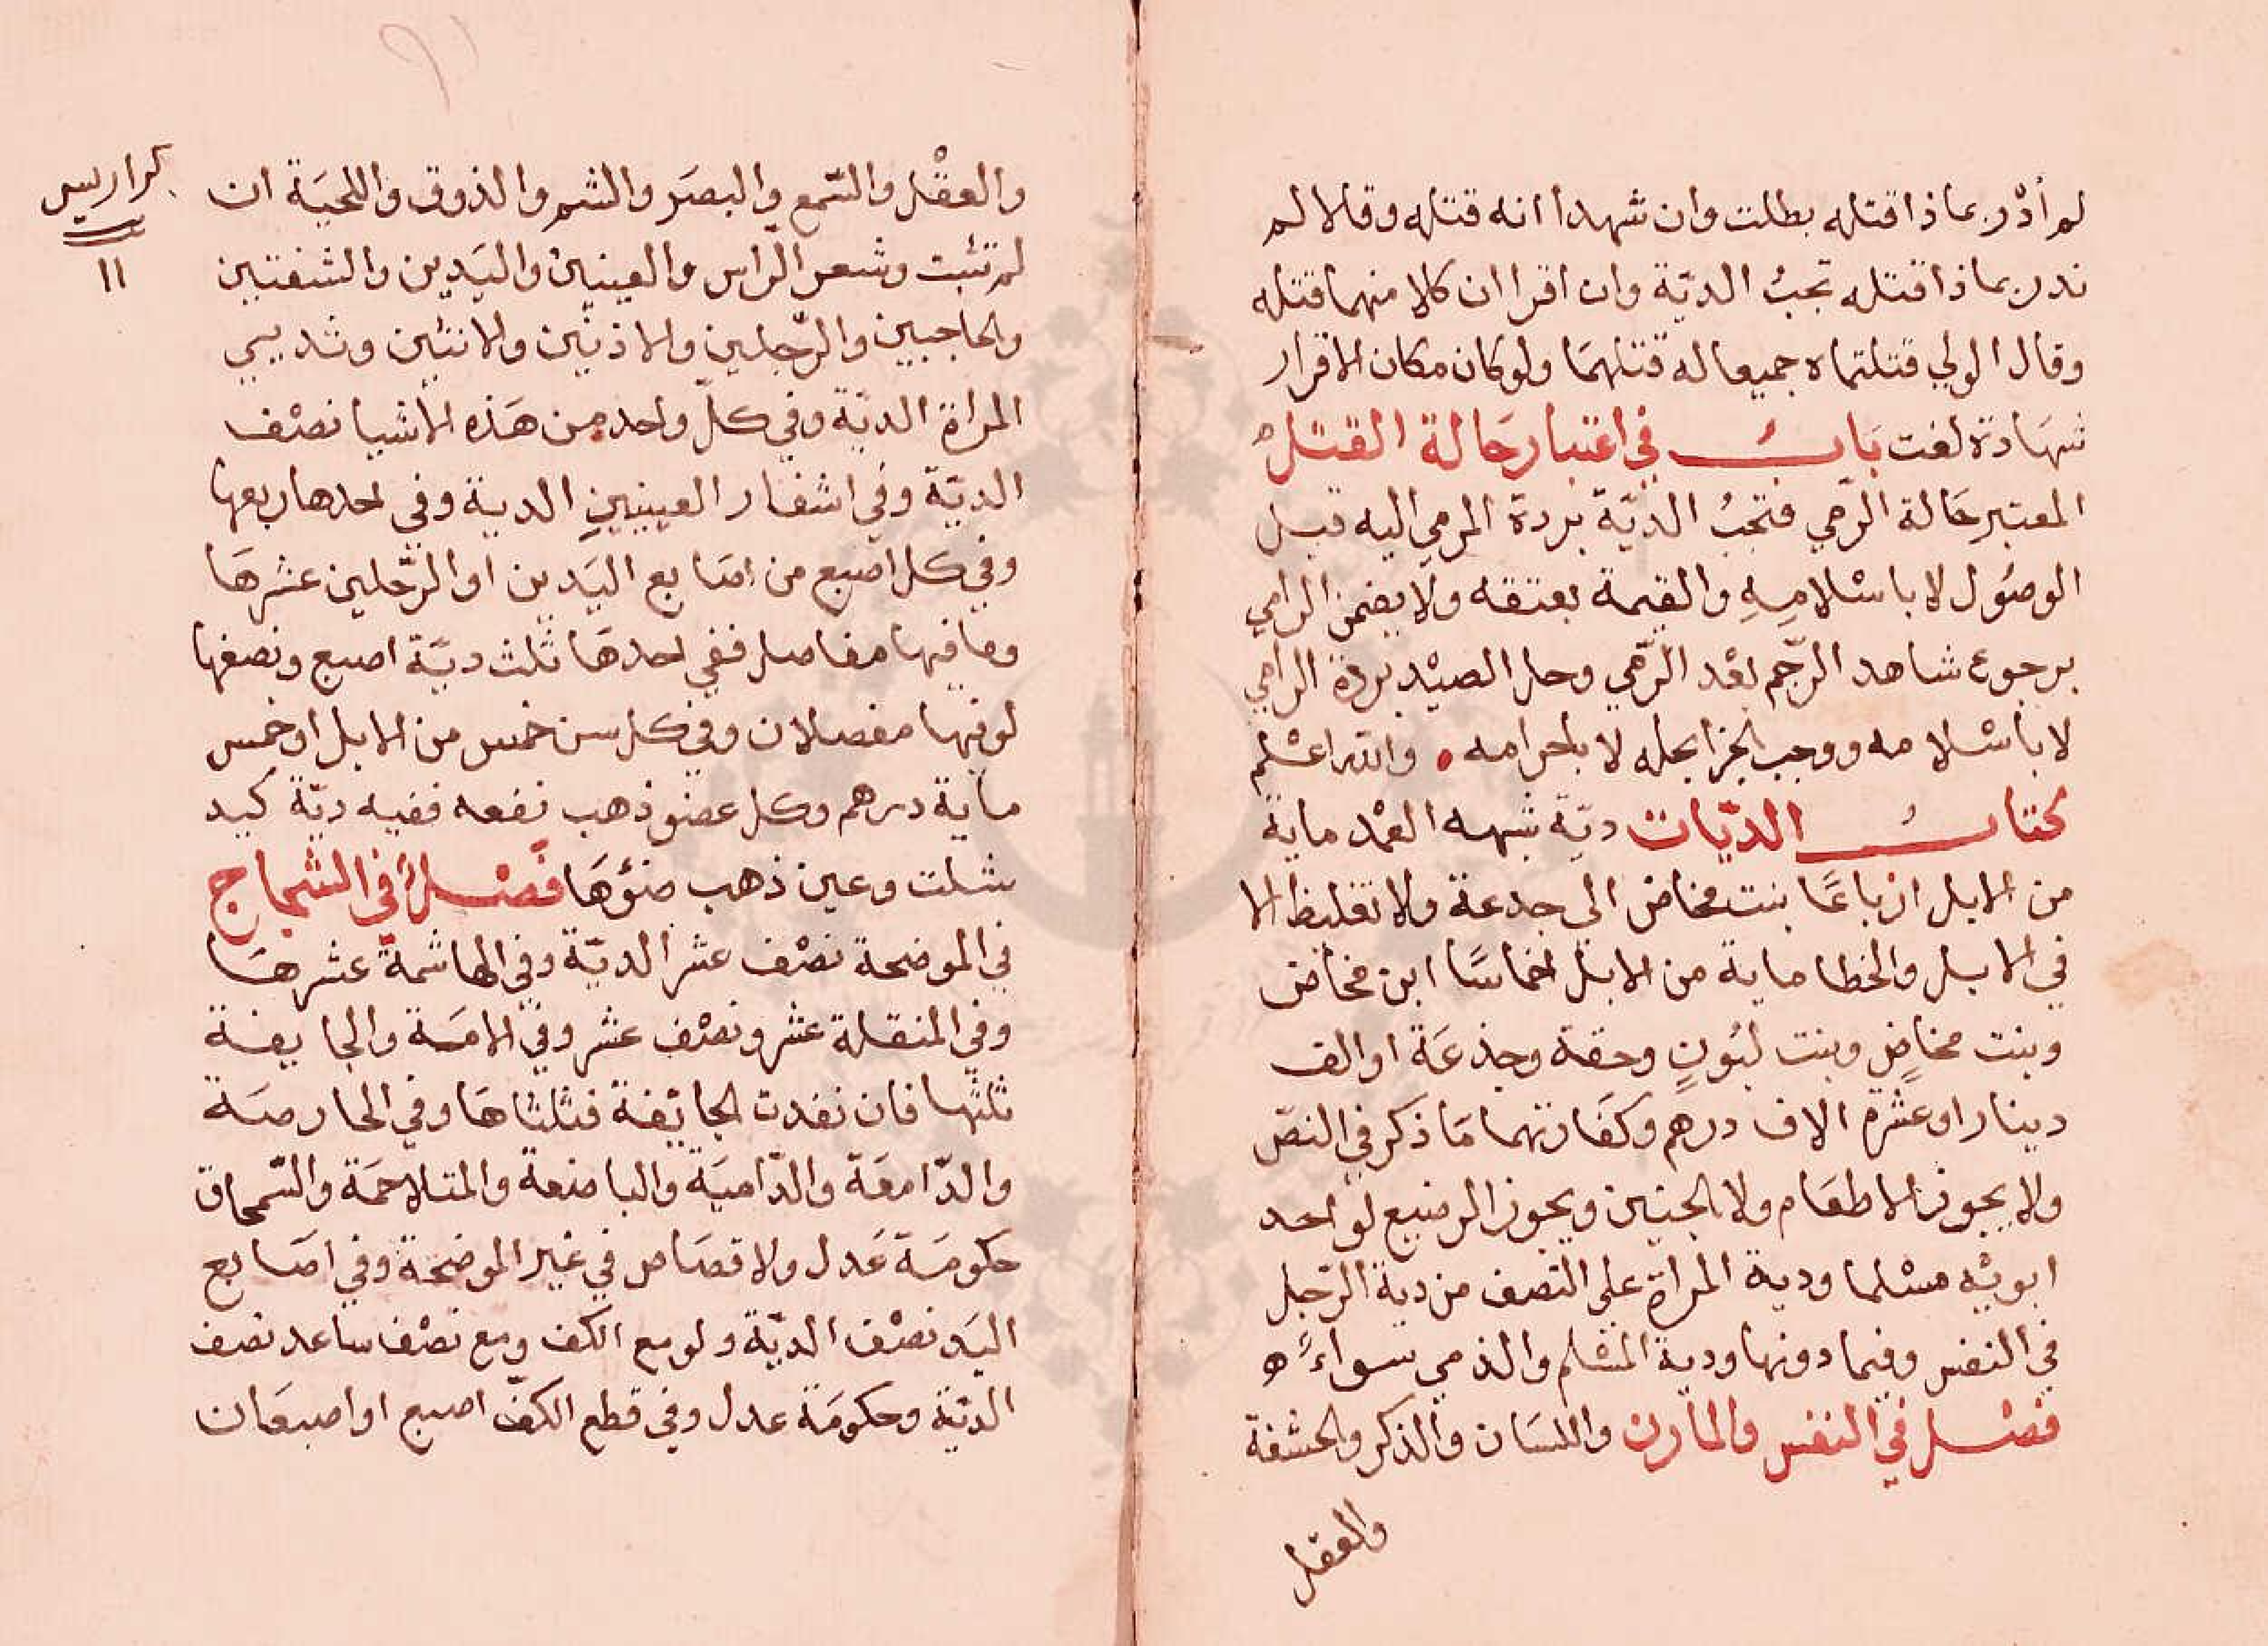 لم أدر بماذا قتله بطلت وان شهدا انه قتله وقالا لم
ندر بماذا قتله تجبُ الديّة وان اقرا ان كلا منهما قتله
وقال الولي قتلتماه جميعا له قتلهمَا ولو كان مكان الاقرار
شهَادة لغت بَابُ في اعتبار حَالة القتل
المعتبر حَالة الرّمي فتجبُ الديّة بردة المرمي اليه قبل
الوصُول لا باسْلامِهِ والقيمة بعتقه ولا يضمن الرامي
برجوع شاهد الرّجم بعْد الرّمي وحل الصيْد بردة الرامي
لا باسْلامه ووجب الجزا بحله لا باحرامه والله اعْلم
كتابُ الديّات ديّة شبه العمْد ماية
من الابل ارْباعًا بنت مخاض الى جدعة ولا تغليظ الا
في الابل والخطا ماية من الابل اخماسًا ابن مخاض
وبنت مخاضٍ وبنت لبُونٍ وحقة وجذعَة او الف
دينار او عشْرة الاف درهم وكفَارتهما مَا ذكر في النصّ
ولا يجوز الاطعَام ولا الجنين ويجوز الرضيع لو احد
ابويْه مسْلما ودية المراة على النصف من دية الرّجل
في النفس وفيما دونها ودية المسْلم والذمي سواءً ه
فصْل في النفس والمارن واللسَان والذكر والحشفة
والعقل
والعقْل والسّمع والبصَر والشم والذوق واللحيَة ان
لم تنبت وشعر الرّاس والعينين واليَدين والشفتين
والحاجبين والرّجلين والاذنين والانثيين وثديي
المراة الديّة وفي كلّ واحد من هَذه الاشيا نصْف
الديّة وفي اشفار العينين الدية وفي احدها ربعها
وفي كل اصبع من اصَابع اليَدين او الرّجلين عشرهَا
وما فيها مفاصل ففي احدهَا ثلث ديّة اصبع ونصفها
لو فيها مفصلان وفي كل سن خمس من الابل او خمس
ماية درهم وكل عضو ذهب نفعه ففيه ديّة كيد
شلت وعين ذهب ضؤهَا فصْل في الشجاج
في الموضحة نصْف عشر الديّة وفي الهاشمة عشرهَا
وفي المنقلة عشر ونصْف عشر وفي الامَة والجايفة
ثلثها فان نفدت الجائفة فثلثاهَا وفي الحارصَة
والدّامعَة والدّاميَة والباضعة والمتلاحمَة والسّمحاق
حكومَة عَدل ولا قصَاص في غير الموضحة وفي اصَابع
اليَد نصْف الديّة ولو مع الكف ومع نصْف ساعد نصف
الديّة وحكومَة عدل وفي قطع الكفّ اصبع او اصبعَان
كراريس
١١